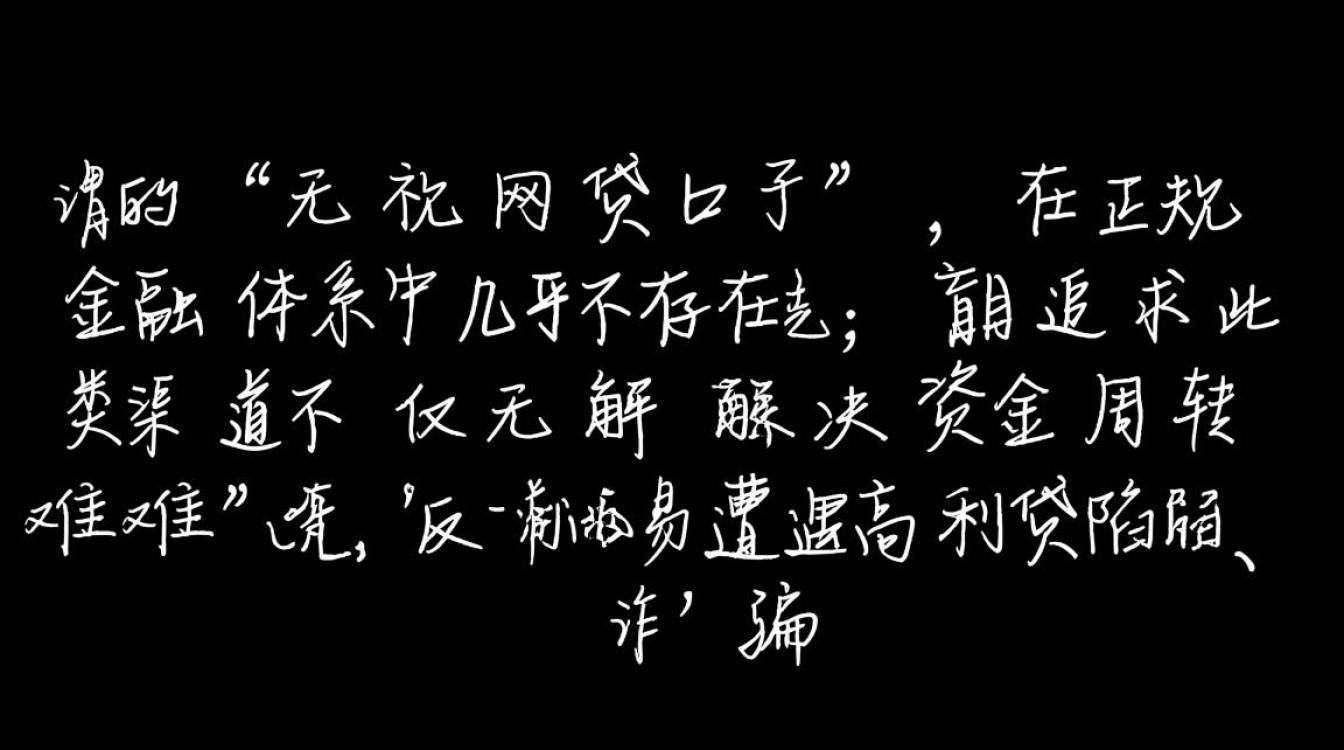 谓的“无视网贷口子”，在正规
金融体系中几乎不存在；盲目追求此
类渠道不仅无解决资金周转
难难”，反易遭遇高利贷陷、
诈’骗